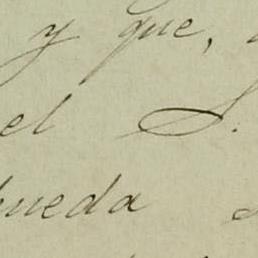 y que,
el S.
ueda